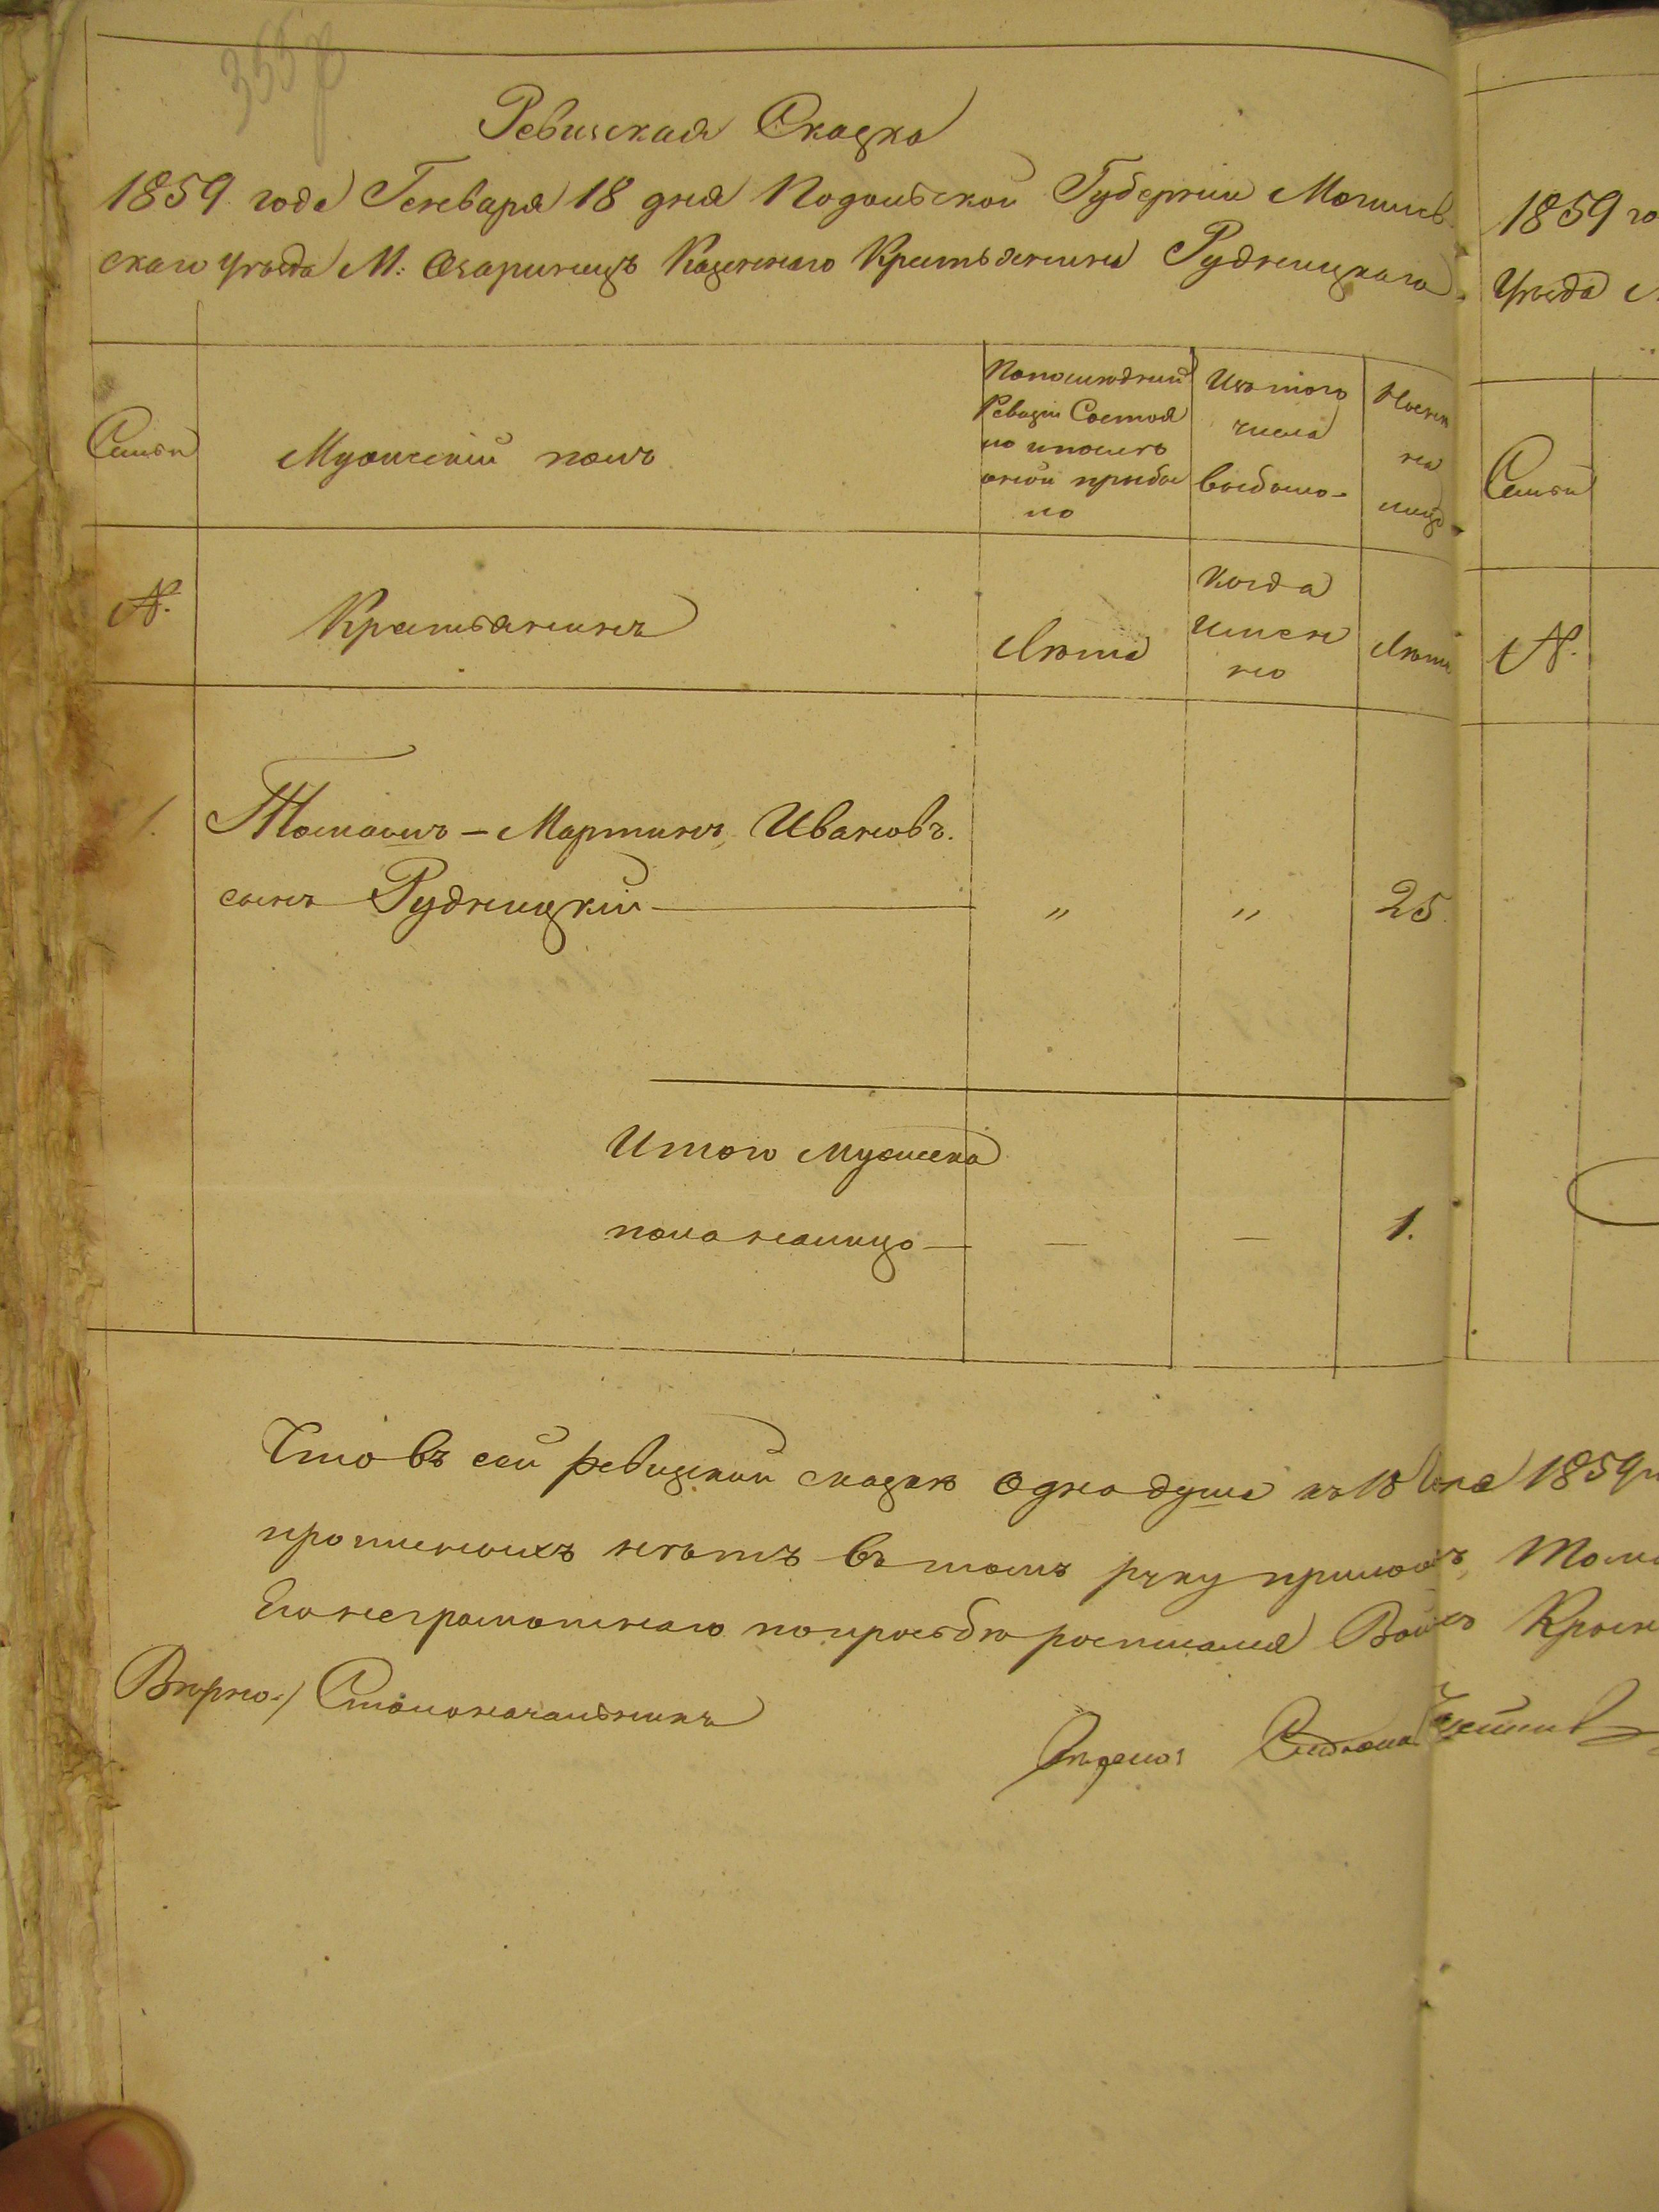 355
Ревизская Сказка
1859 года Генваря 18 дня Подольской Губернии Могилев
скаго уѣзда М: Озаринецъ Казеннаго Крестьянина Рудницкаго
Семьи
Мужескій полъ
Попослѣдней
Ревизіи Состоя
ло и послѣ
оной прибы
ло
Изъ того
числа
выбыло
Ныне
на
лицо
№.
Крестьянинъ
Лѣта
Когда
Имен
но
Лѣта
1.
Томашъ - Мартинъ Ивановъ.
сынъ Рудницкій
"
"
25.
Итого мужеска
пола налицо
—
—
1.
Что въ сей ревизской сказкѣ одна душа къ 18 1859
прописныхъ нѣтъ въ томъ руку прилож
Его неграмотнаго по просьбѣ росписался
Вѣрно:/ Столоначальникъ
1859 го
Уѣзда
Семьи
№.